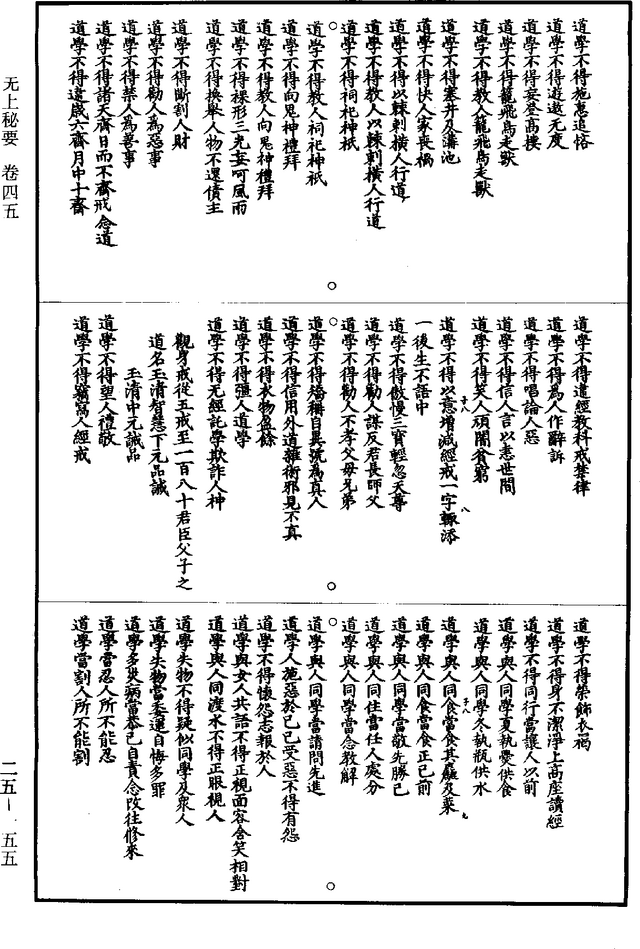 无上秘要 卷四五
道學不得施惠追悋
道學不得遊遨无度
道學不得妄登高樓
道學不得籠飛鳥走獸
道學不得教人籠飛鳥走獸
道學不得塞井及溝池
道學不得快人家喪禍
道學不得以棘刺橫人行道
道學不得教人以棘刺橫人行道
道學不得祠祀神祇
道學不得教人祠祀神祇
道學不得向鬼神禮拜
道學不得教人向鬼神禮拜
道學不得裸形三光妄呵風雨
道學不得換舉人物不還債主
道學不得斷割人財
道學不得勸人為惡事
道學不得禁人為善事
道學不得諸天齋日而不齋戒念道
道學不得違歲六齋月中十齋
道學不得違經教科戒禁律
道學不得為人作辭訴
道學不得唱論人惡
道學不得信人言以恚世間
道學不得笑人頑闇貧窮
十八
道學不得以意增減經戒一字輒添
八
一後生不語中
道學不得傲慢三寶輕忽天尊
道學不得勸人謀反君長師父
道學不得勸人不孝父母兄弟
道學不得矯稱自異號為真人
道學不得信用外道雜術邪見不真
道學不得衣物盈餘
道學不得強人道學
道學不得无經託學欺詐人神
觀身戒從五戒至一百八十君臣父子之
道名玉清智慧下元品誡
玉清中元誡品
道學不得望人禮敬
道學不得竊寫人經戒
道學不得榮飾衣褐
道學不得身不潔淨上高座讀經
道學不得同行當讓人以前
道學與人同學夏執憂供食
道學與人同學冬執瓶供水
十八
道學與人同食當食其麤及菜
九
道學與人同食當食正己前
道學與人同學當敬先勝己
道學與人同住當任人處分
道學與人同學當念教解
道學與人同學當請問先進
道學人施惡於己己受惡不得有怨
道學不得懷怨志報於人
道學與女人共語不得正視面容含笑相對
道學與人同渡水不得正眼視人
道學失物不得疑似同學及衆人
道學失物當委運自悔多罪
道學多災病當恭己自責念改往修來
道學當忍人所不能忍
道學當割人所不能割
二五-五五